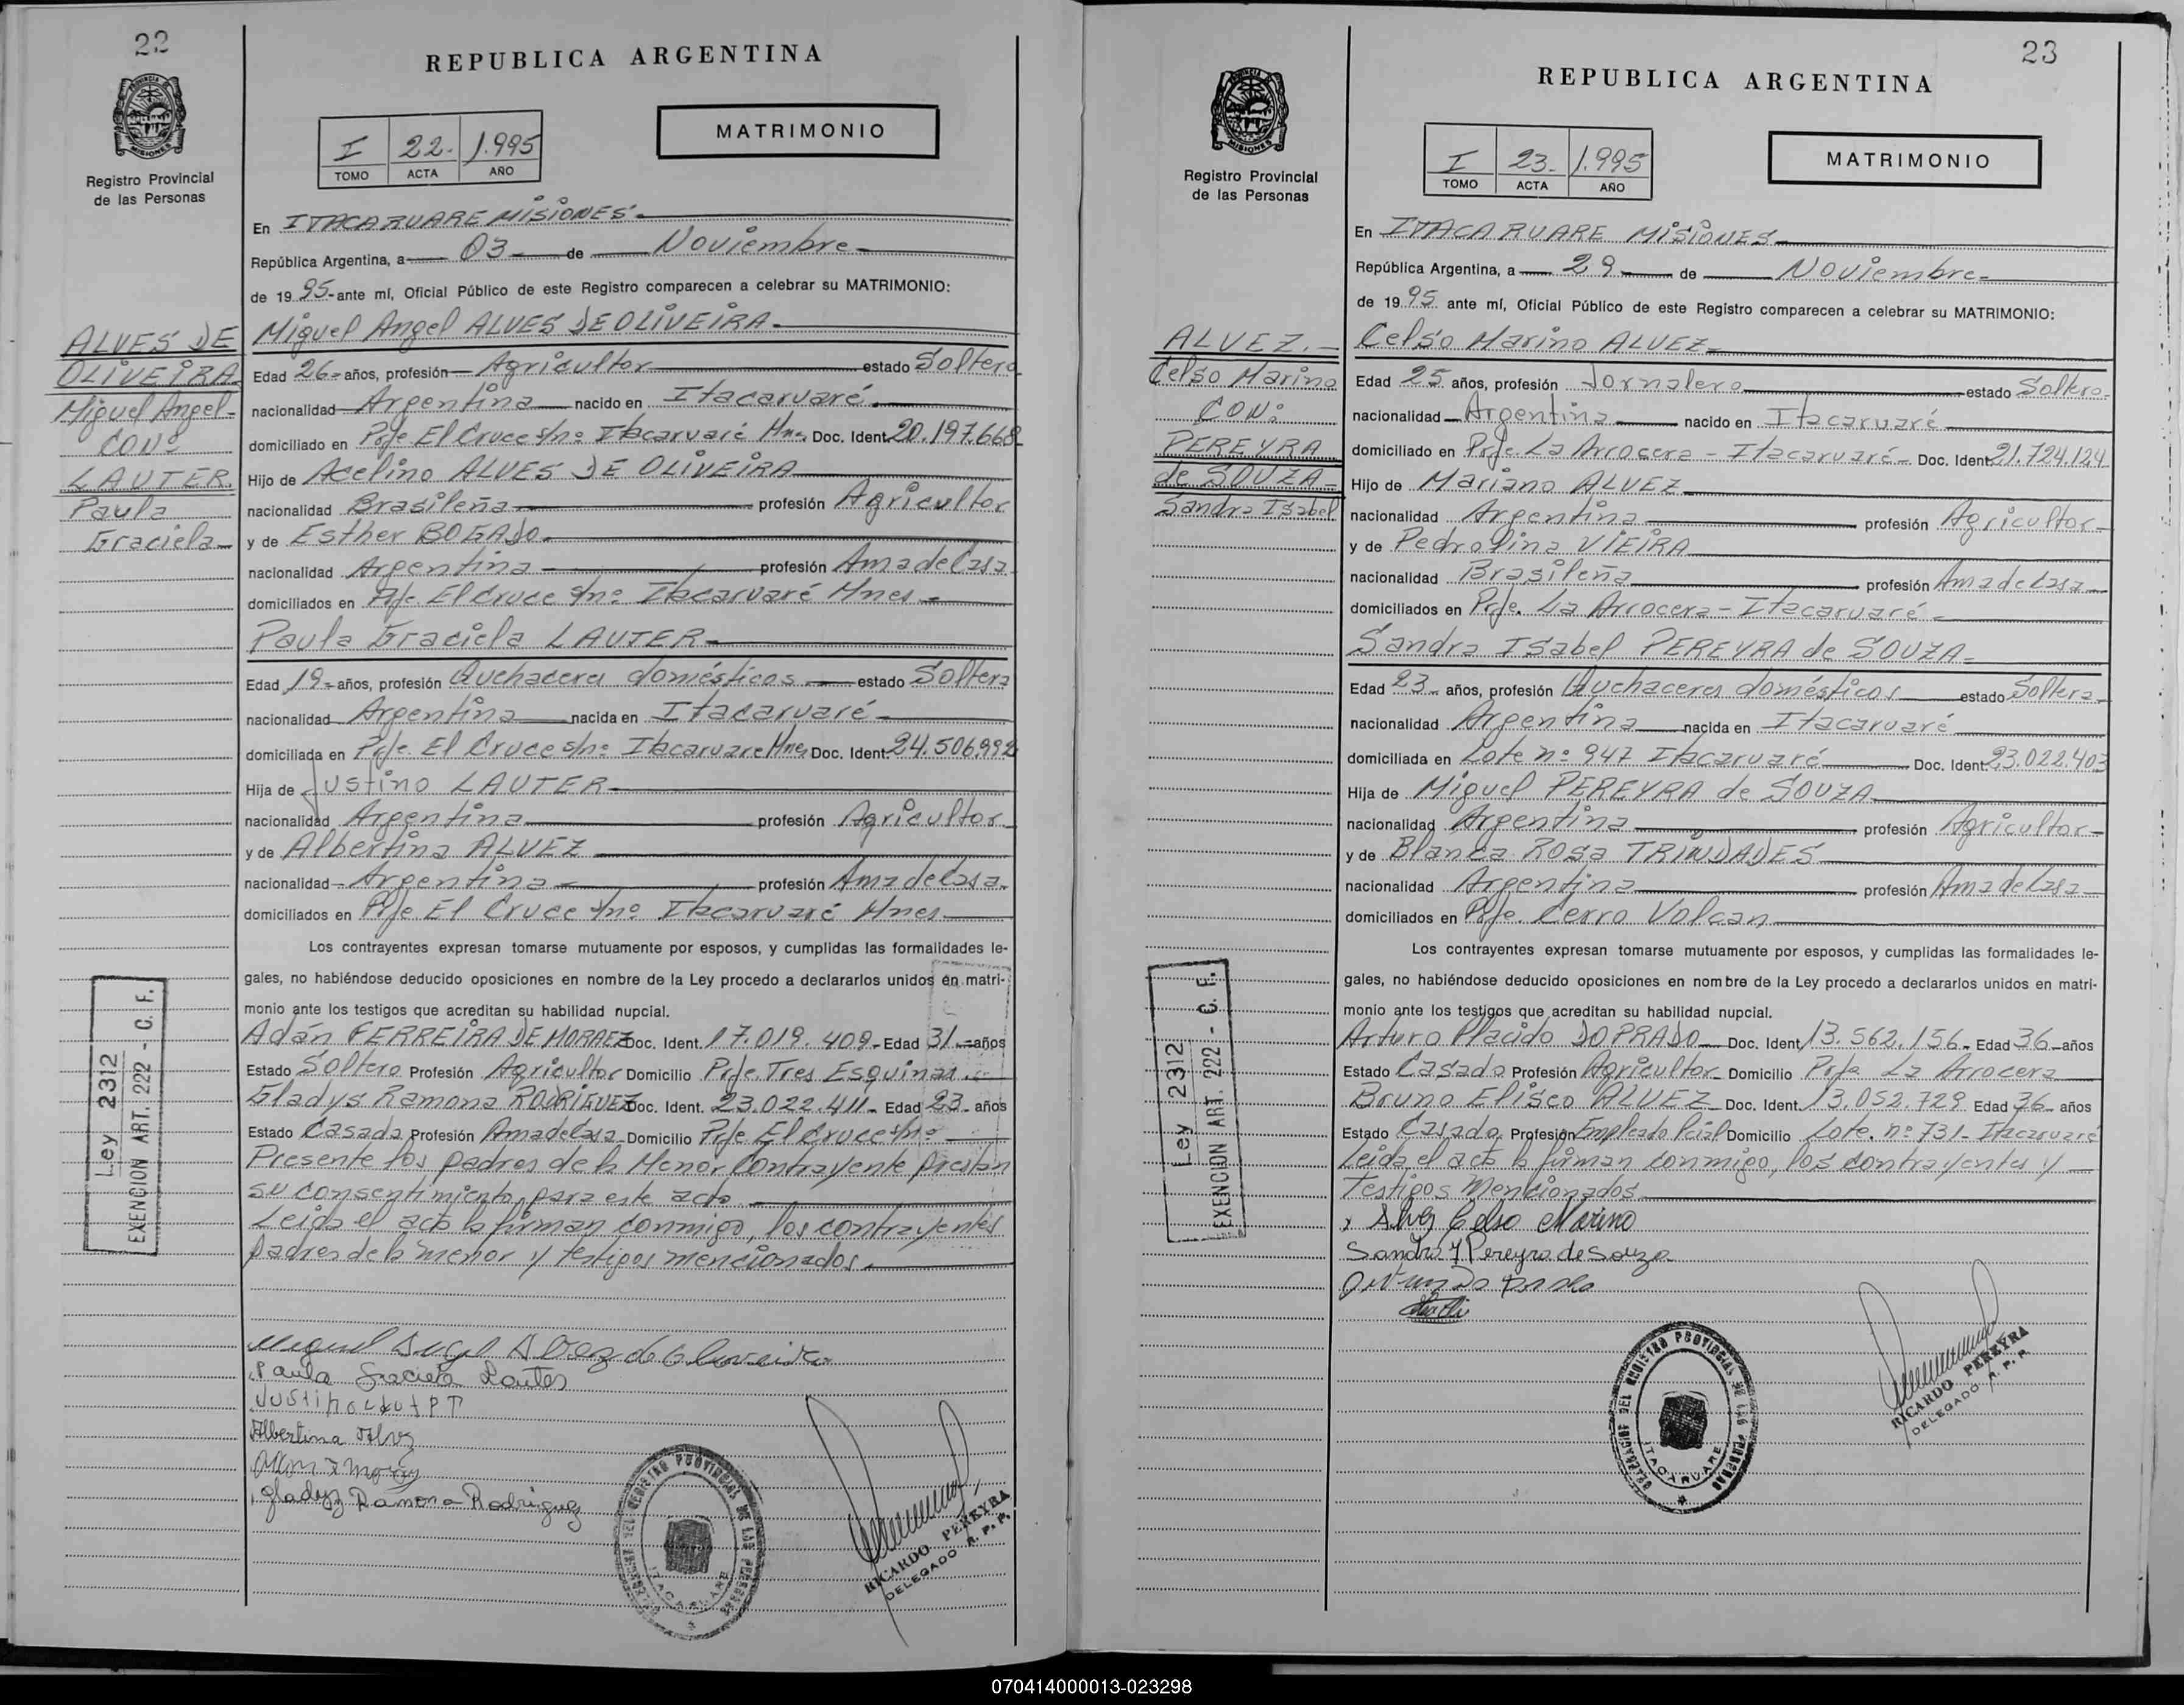 22
REPUBLICA ARGENTINA
PROVINCIA DE
MISIONES
Registro Provincial
de las Personas
I 22- 1.995
TOMO ACTA AÑO
MATRIMONIO
En ITACARUARE MISIONES.
República Argentina, a 03 de Noviembre
de 1995- ante mí, Oficial Público de este Registro comparecen a celebrar su MATRIMONIO:
ALVES DE
OLIVEIRA
Miguel Angel-
CON:
LAUTER.
Paula
Graciela
Miguel Angel ALVES DE OLIVEIRA.
Edad 26- años, profesión Agricultor estado Soltero
nacionalidad Argentina nacido en Itacaruaré.
domiciliado en Pje. El Cruce s/nº Itacaruaré Mnes. Doc. Ident. 20.197.668
Hijo de Acelino ALVES DE OLIVEIRA
nacionalidad Brasileña profesión Agricultor
y de Esther BOGADO.
nacionalidad Argentina profesión Ama de Casa
domiciliados en Pje. El Cruce s/nº Itacaruaré Mnes.
Paula Graciela LAUTER
Edad 19- años, profesión Quehaceres domésticos estado Soltera
nacionalidad Argentina nacida en Itacaruaré
domiciliada en Pje. El Cruce s/nº Itacaruare Mnes Doc. Ident. 24.506.992
Hija de Justino LAUTER
nacionalidad Argentina profesión Agricultor
y de Albertina ALVEZ
nacionalidad Argentina profesión Ama de Casa.
domiciliados en Pje El Cruce s/nº Itacaruaré Mnes
Los contrayentes expresan tomarse mutuamente por esposos, y cumplidas las formalidades le-
gales, no habiéndose deducido oposiciones en nombre de la Ley procedo a declararlos unidos en matri-
monio ante los testigos que acreditan su habilidad nupcial.
Adán FERREIRA DE MORAEZ Doc. Ident. 17.019.409- Edad 31 años
Estado Soltero Profesión Agricultor Domicilio Pje. Tres Esquinas
Gladys Ramona RODRIGUEZ Doc. Ident. 23.022.411- Edad 23- años
Estado Casada Profesión Ama de Casa Domicilio Pje El Cruce s/nº
Presente los padres de la Menor Contrayente prestan
su consentimiento para este acto.
Leida el acta la firman conmigo, los contrayentes
padres de la menor y testigos mencionados.
Ley 2312
EXENCION ART. 222 - C. F.
Paula Graciela Lauter
Albertina Alvez
Gladyz Ramona Rodriguez
DELEGACION DEL REGISTRO PROVINCIAL DE LAS PERSONAS
ITACARUARE
RICARDO PEREYRA
DELEGADO R. P. P.
23
REPUBLICA ARGENTINA
PROVINCIA DE
MISIONES
Registro Provincial
de las Personas
I 23- 1.995
TOMO ACTA AÑO
MATRIMONIO
En ITACARUARE MISIONES
República Argentina, a 29 de Noviembre
de 1995 ante mí, Oficial Público de este Registro comparecen a celebrar su MATRIMONIO:
ALVEZ.-
Celso Marino
CON:
PEREYRA
de SOUZA-
Sandra Isabel
Celso Marino ALVEZ
Edad 25 años, profesión Jornalero estado Soltero
nacionalidad Argentina nacido en Itacaruaré
domiciliado en Pje. La Arrocera - Itacaruaré- Doc. Ident. 21.724.124
Hijo de Mariano ALVEZ
nacionalidad Argentina profesión Agricultor
y de Pedrolina VIEIRA
nacionalidad Brasileña profesión Ama de Casa
domiciliados en Pje. La Arrocera - Itacaruaré
Sandra ISabel PEREYRA de SOUZA
Edad 23 años, profesión Quehaceres domésticos estado Soltera
nacionalidad Argentina nacida en Itacaruaré
domiciliada en Lote nº 947 Itacaruaré Doc. Ident. 23.022.403
Hija de Miguel PEREYRA de SOUZA
nacionalidad Argentina profesión Agricultor
y de Blanca Rosa TRINDADES
nacionalidad Argentina profesión Ama de Casa
domiciliados en Pje. Cerro Volcan
Los contrayentes expresan tomarse mutuamente por esposos, y cumplidas las formalidades le-
gales, no habiéndose deducido oposiciones en nombre de la Ley procedo a declararlos unidos en matri-
monio ante los testigos que acreditan su habilidad nupcial.
Arturo Placido DO PRADO Doc. Ident. 13.562.156- Edad 36 años
Estado Casado Profesión Agricultor Domicilio Pje La Arrocera
Bruno Eliseo ALVEZ Doc. Ident. 13.052.729 Edad 36 años
Estado Casado Profesión Empleado Pcial Domicilio Lote. nº 731- Itacaruaré
Leida el acta la firman conmigo, los contrayentes y
Testigos Mencionados
Ley 2312
EXENCION ART. 222 - C. F.
Celso Marino
Sandra Y Pereyra de Souza
DELEGACION DEL REGISTRO PROVINCIAL DE LAS PERSONAS
ITACARUARE
RICARDO PEREYRA
DELEGADO R. P. P.
070414000013-023298